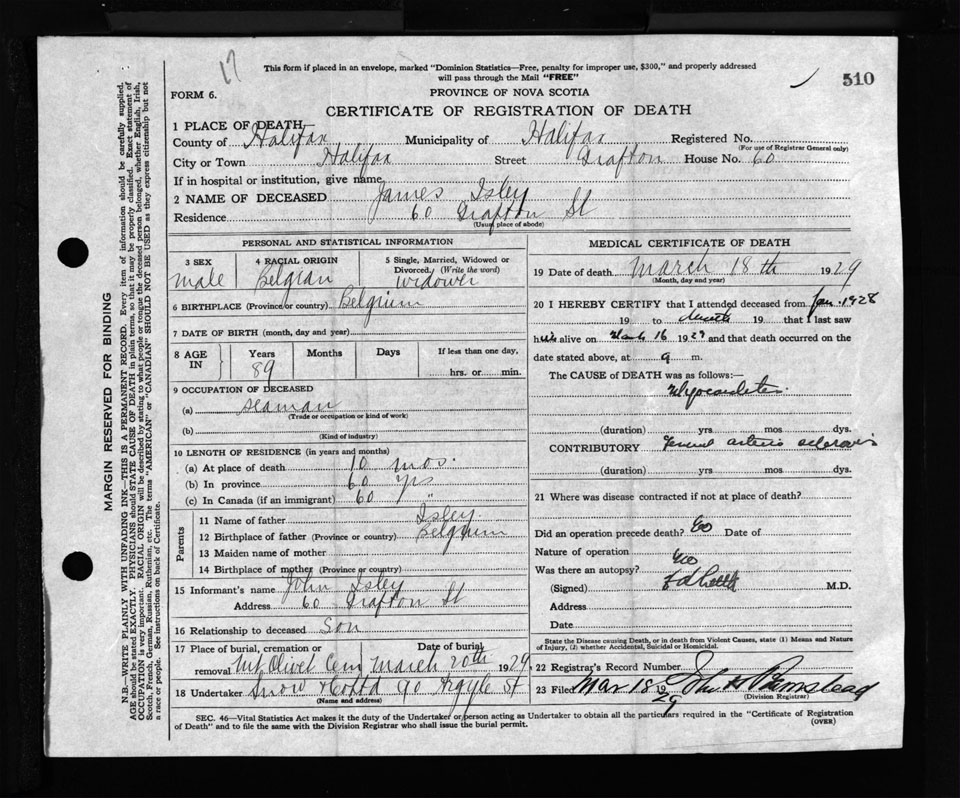 17
This form if placed in an envelope, marked "Dominion Statistics—Free, penalty for improper use, $300," and properly addressed
will pass through the Mail "FREE"
510
FORM 6.
PROVINCE OF NOVA SCOTIA
CERTIFICATE OF REGISTRATION OF DEATH
1 PLACE OF DEATH—
County of Halifax Municipality of Halifax Registered No.
(For use of Registrar General only)
City or Town Halifax Street Grafton House No. 60
If in hospital or institution, give name
2 NAME OF DECEASED James Isley
Residence 60 Grafton St
(Usual place of abode)
PERSONAL AND STATISTICAL INFORMATION
3 SEX male
4 RACIAL ORIGIN Belgian
5 Single, Married, Widowed or
Divorced. (Write the word)
widower
6 BIRTHPLACE (Province or country) Belgium
7 DATE OF BIRTH (month, day and year)
8 AGE IN Years 89 Months Days If less than one day,
hrs. or min.
9 OCCUPATION OF DECEASED
(a) seaman
(Trade or occupation or kind of work)
(b)
(Kind of industry)
10 LENGTH OF RESIDENCE (in years and months)
(a) At place of death 10 mos.
(b) In province 60 yrs
(c) In Canada (if an immigrant) 60 "
Parents
11 Name of father Isley.
12 Birthplace of father (Province or country) Belgium
13 Maiden name of mother
14 Birthplace of mother (Province or country)
15 Informant's name John Isley
Address 60 Grafton St
16 Relationship to deceased Son
17 Place of burial, cremation or removal Mt Olivet Cem Date of burial March 20th 1929
18 Undertaker Snow & Co Ltd 90 Argyle St
(Name and address)
MEDICAL CERTIFICATE OF DEATH
19 Date of death March 18th 1929
(Month, day and year)
20 I HEREBY CERTIFY that I attended deceased from Jan. 1928
19 to death 19 that I last saw
him alive on March 16 1929 and that death occurred on the
date stated above, at 9 m.
The CAUSE of DEATH was as follows:—
Myocarditis.
(duration) yrs mos dys.
CONTRIBUTORY General arterio sclerosis
(duration) yrs mos dys.
21 Where was disease contracted if not at place of death?
Did an operation precede death? No Date of
Nature of operation
Was there an autopsy? No
(Signed) M.D.
Address
Date
State the Disease causing Death, or in death from Violent Causes, state (1) Means and Nature
of Injury, (2) whether Accidental, Suicidal or Homicidal.
22 Registry's Record Number
23 Filed Mar 18 1929 John H
(Division Registrar)
SEC. 46—Vital Statistics Act makes it the duty of the Undertaker or person acting as Undertaker to obtain all the particulars required in the "Certificate of Registration
of Death" and to file the same with the Division Registrar who shall issue the burial permit.
(OVER)
MARGIN RESERVED FOR BINDING
N.B.—WRITE PLAINLY WITH UNFADING INK—THIS IS A PERMANENT RECORD. Every item of information should be carefully supplied.
AGE should be stated EXACTLY. PHYSICIANS should STATE CAUSE OF DEATH in plain terms, so that it may be properly classified. Exact statement of
OCCUPATION is very important. RACIAL ORIGIN will be described by stating to what people or tongue the deceased person belonged, whether English, Irish,
Scotch, French, German, Russian, Ruthenian, etc. The terms "AMERICAN" or "CANADIAN" SHOULD NOT BE USED as they express citizenship but not
a race or people. See instructions on back of Certificate.